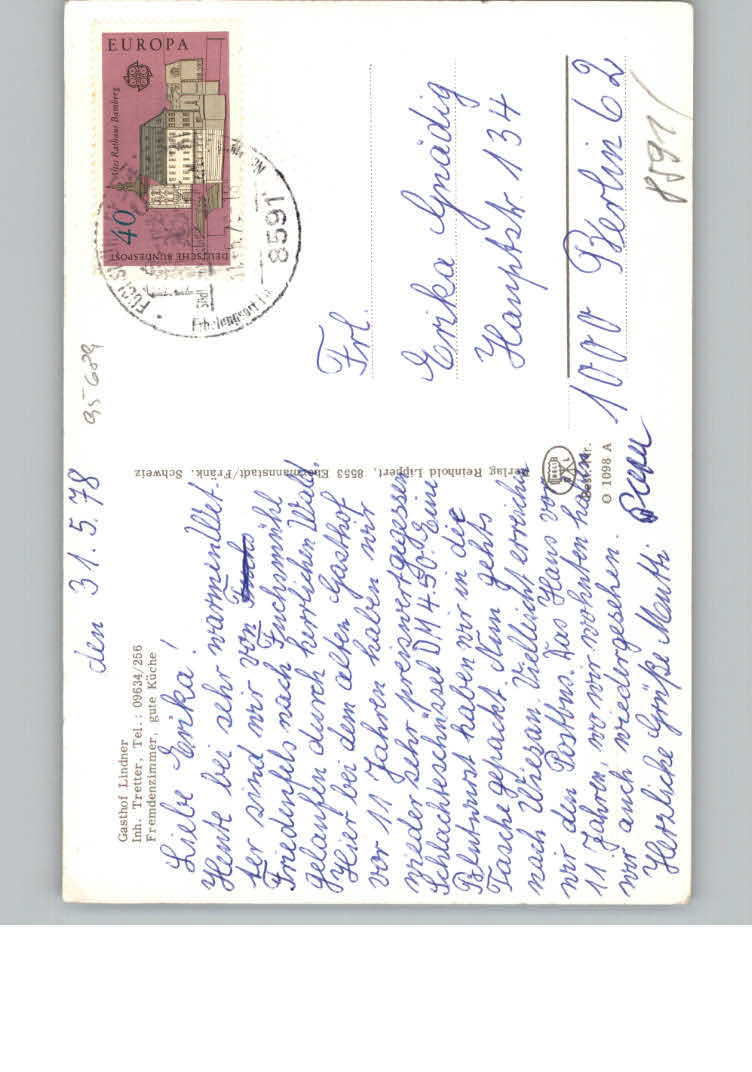 Gasthof Lindner
Inh. Tretter, Tel.: 09634/256
Fremdenzimmer, gute Küche
den 31.5.78
Liebe Erika!
Heute bei sehr warmen Wet-
ter sind wir von
Friedenfels nach Fuchsmühl
gelaufen durch herrlichen Wald.
Hier bei dem alten Gasthof
vor 11 Jahren haben wir
wieder sehr preiswert gegessen
Schlachteschüssel DM 4.50. Eine
Blutwurst haben wir in die
Tasche gepackt. Nun gehts
nach Wiesau. Vielleicht erreichen
wir den Postbus. Das Haus vor
11 Jahren, wo wir wohnten haben
wir auch wiedergesehen.
Herzliche Grüße Mutti
Verlag Reinhold Lippert, 8553 Ebermannstadt/Fränk. Schweiz
Best.-Nr.
O 1098 A
95 689
EUROPA
Altes Rathaus Bamberg
40
DEUTSCHE BUNDESPOST
8591
Frl.
Erika Gnädig
Hauptstr. 134
1000 Berlin 62
8591/